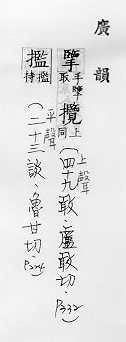 廣韻
擥手擥取攬上同(四十九敢、盧敢切、P332)
上聲
㩜㩜持(二十三談、魯甘切、P224)
平聲